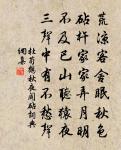 荒涼客舍眠秋色
砧杵家家弄月明
不及巴山聽猿夜
三聲中有不愁聲
杜荀鶴秋夜聞砧詞典
網集